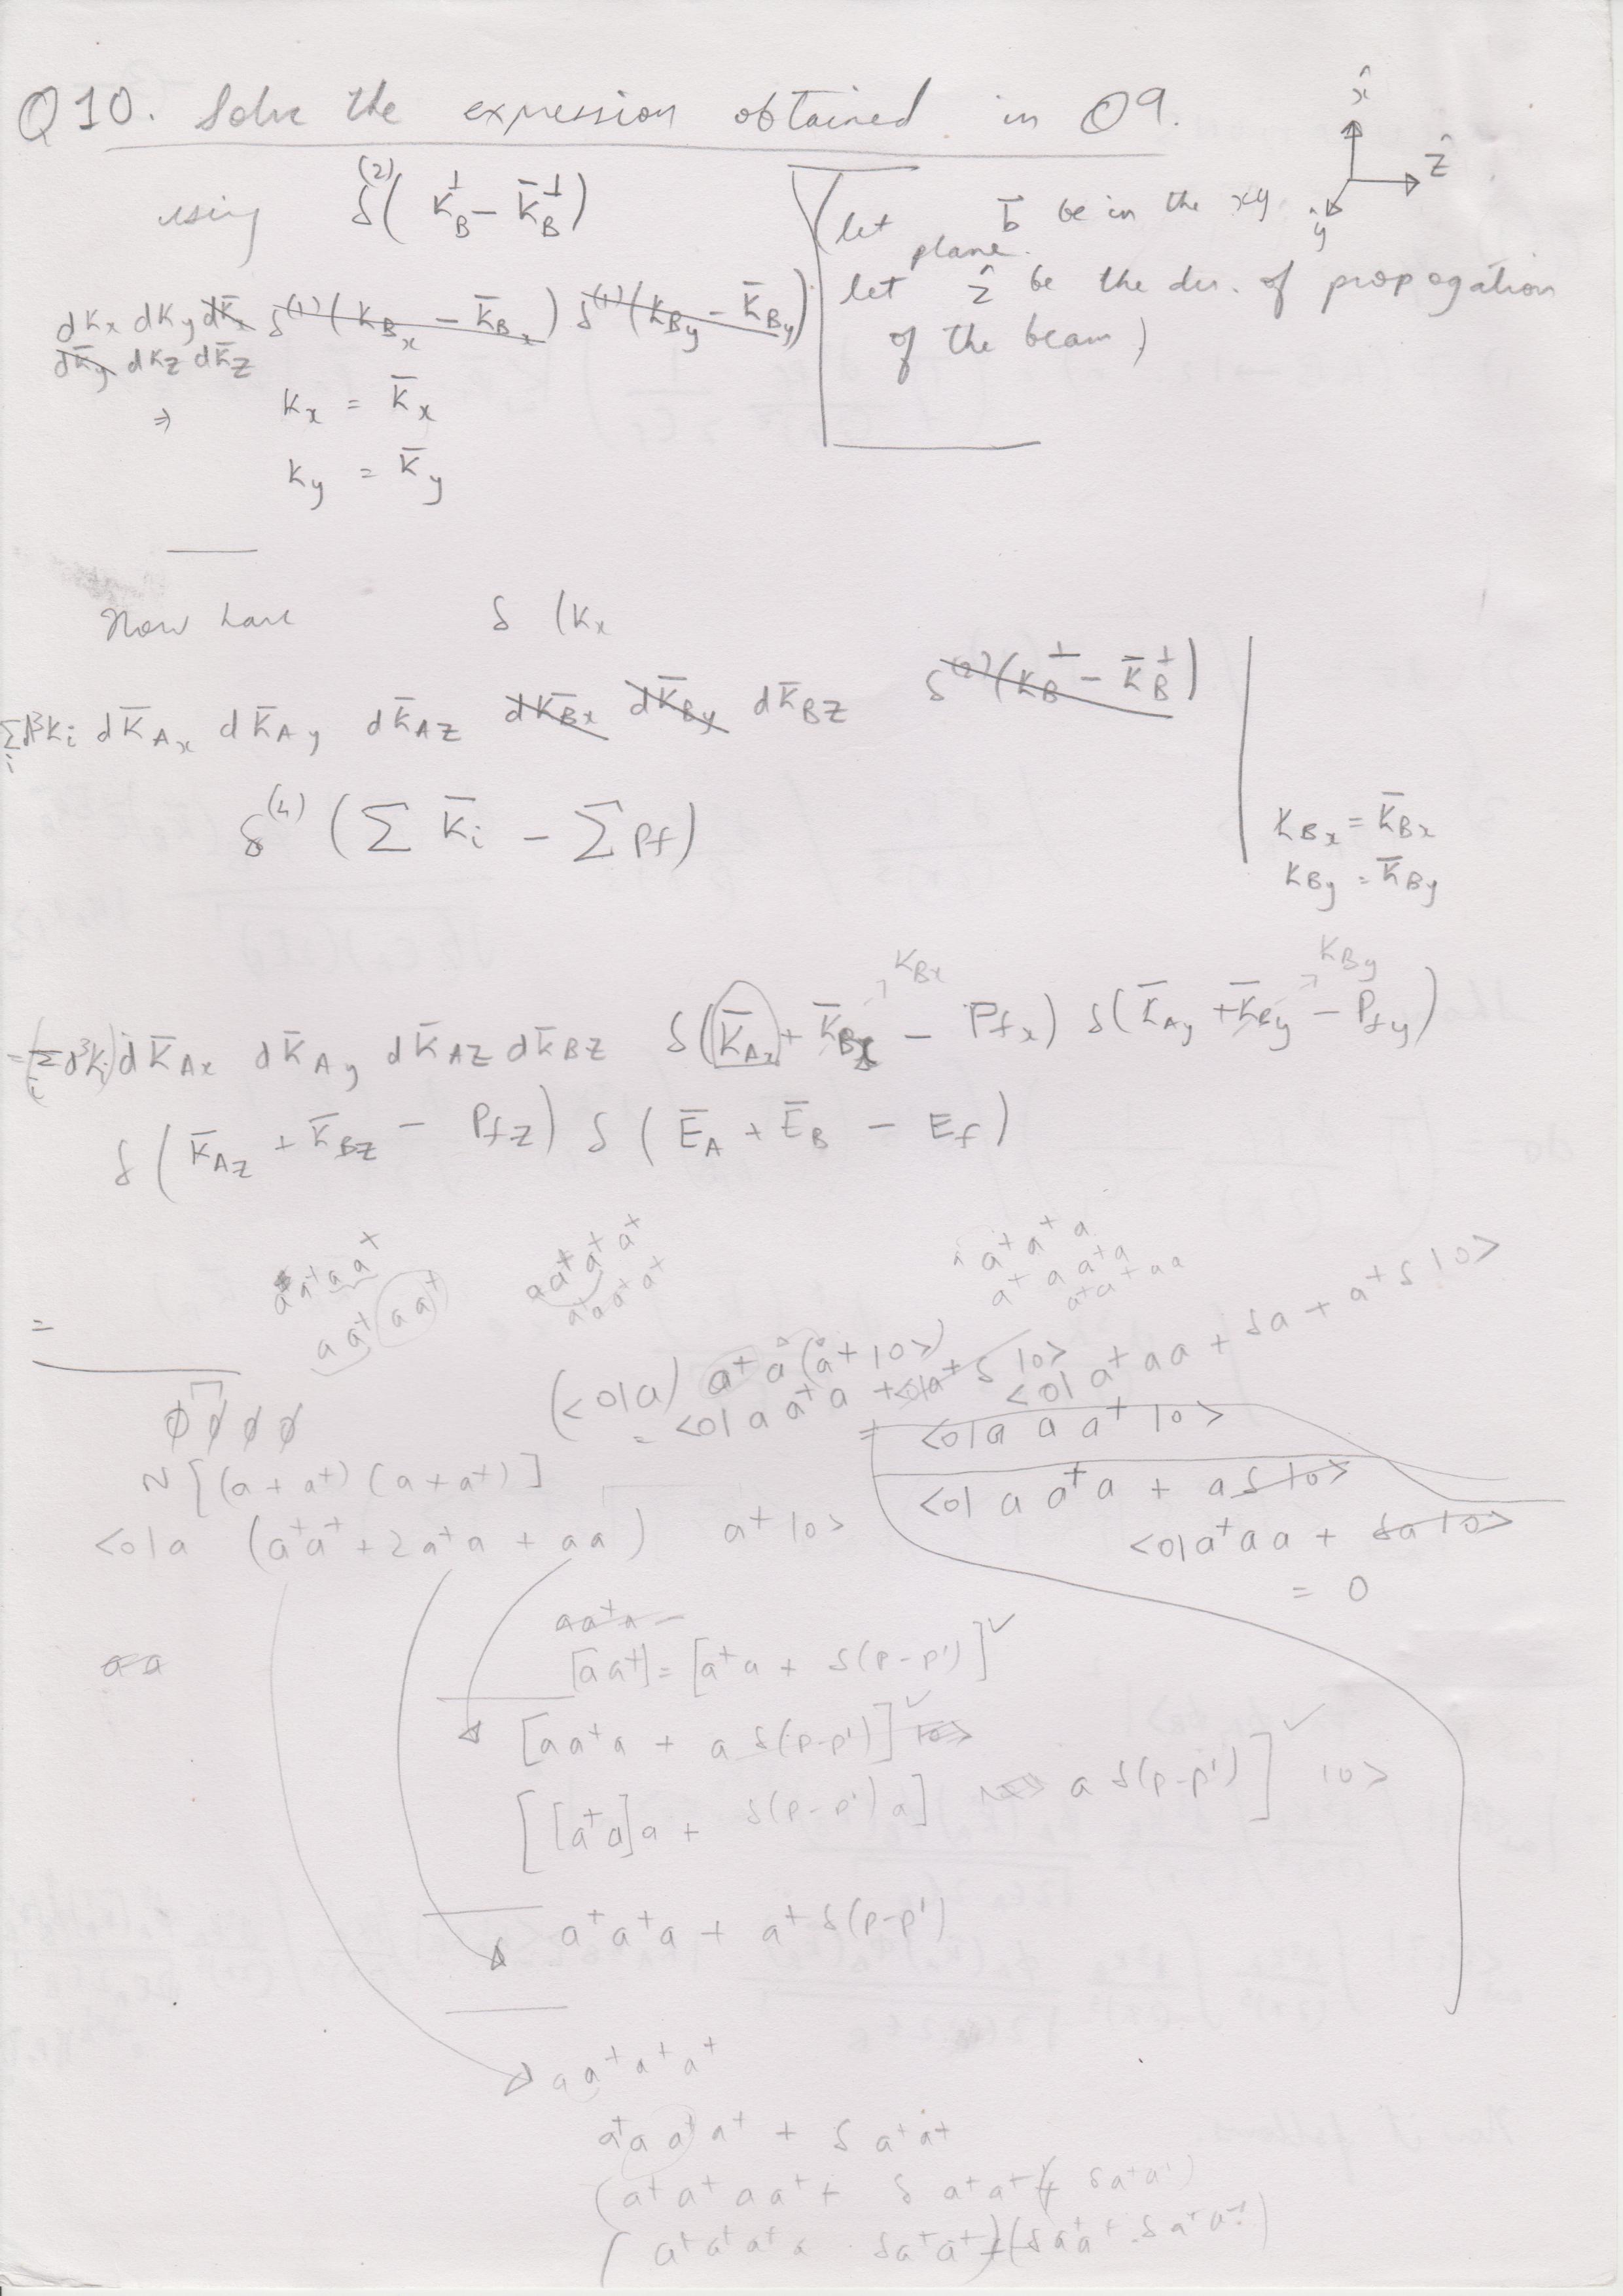 Q10. Solve the expression obtained in Q9.
x̂
ẑ
ŷ
using δ⁽²⁾( k_B^⊥ − k̄_B^⊥ )
(let b̄ be in the xy plane.
let ẑ be the dir. of propagation
of the beam)
dKx dKy dK̄x δ⁽¹⁾(k_Bx − k̄_Bx) δ⁽¹⁾(k_By − k̄_By)
dK̄y dKz dK̄z
⇒ kx = k̄x
ky = k̄y
Now have δ (kx
Σ_i d³k_i dk̄_Ax dk̄_Ay dk̄_Az dk̄_Bx dk̄_By dk̄_Bz δ⁽²⁾(k_B^⊥ − k̄_B^⊥)
δ⁽⁴⁾ ( Σ k̄_i − Σ P_f )
k_Bx = k̄_Bx
k_By = k̄_By
k_Bx k_By
= (Σ_i d³k_i) dk̄_Ax dk̄_Ay dk̄_Az dk̄_Bz δ(k̄_Ax + k̄_Bx − P_fx) δ(k̄_Ay + k̄_By − P_fy)
δ( k̄_Az + k̄_Bz − P_fz ) δ( Ē_A + Ē_B − E_f )
a a⁺ a a⁺
a a⁺ a a⁺
a a⁺ a⁺ a⁺
a⁺ a a⁺ a⁺
a⁺ a⁺ a
a⁺ a a⁺ a
a⁺ a⁺ a a
=
(<0|a) a⁺ a (a⁺|0>)
= <0| a a⁺ a + <0|a⁺ δ |0>
<0| a⁺ a a + δa + a⁺ δ |0>
= <0|a a a⁺ |0>
<0| a a⁺ a + a δ |0>
<0|a⁺ a a + δa |0>
= 0
φ φ φ φ
N [(a + a⁺) (a + a⁺)]
<0|a (a⁺a⁺ + 2 a⁺a + aa) a⁺ |0>
a a
a a⁺ a −
[a a⁺] = [a⁺a + δ(p−p')]
[a a⁺ a + a δ(p−p')] |0>
[ [a⁺a]a + δ(p−p') a] a δ(p−p') ] |0>
a⁺ a⁺ a + a⁺ δ(p−p')
a a⁺ a⁺ a⁺
a⁺ a a⁺ a⁺ + δ a⁺ a⁺
(a⁺ a⁺ a a⁺ + δ a⁺ a⁺ + δ a⁺ a⁺)
( a⁺ a⁺ a⁺ a δ a⁺ a⁺ ) + (δ a⁺ a⁺ δ a⁺ a⁺)